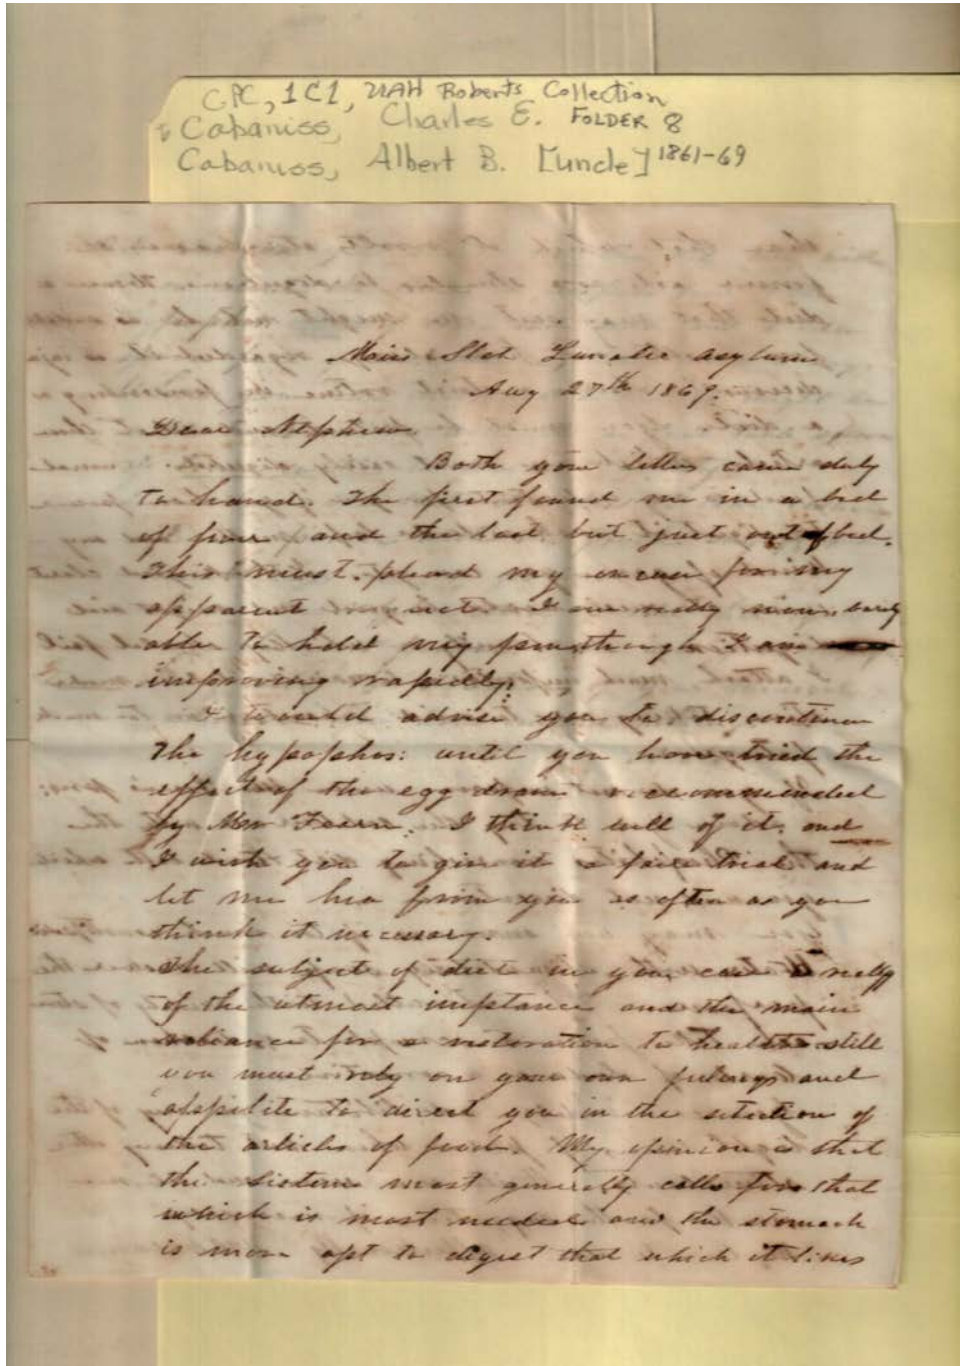 CPC, 1C1, UAH Roberts Collection
& Cabaniss, Charles E. FOLDER 8
Cabaniss, Albert B. [uncle] 1861-69
Lunatic asylum
Aug 27th 1869.
Dear Nephew
Both your letters came duly
to hand. The first found me in a bed
of and the last but just out of bed.
This must plead my excuse for my
apparent I am really now barely
able to hold my pen though I am
improving rapidly.
I would advise you to discontinue
the hypophos: until you have tried the
effect of the egg recommended
by I think well of it, and
I wish you to give it a fair trial and
let me hea from you as often as you
think it necessary.
The subject of diet in your case is really
of the utmost imptance and the main
reliance for a restoration to health still
you must rely on your own feelings and
appetite to direct you in the selection of
the articles of food. My opinion is that
the sistem most generally calls for that
which is most needed and the stomach
is more apt to digest that which it likes